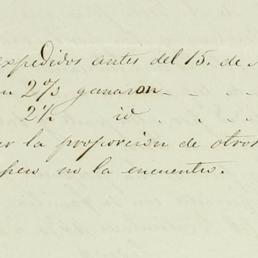 expedidos antes del 15. de
2% ganaron - - -
2½ id - - -
la proporcion de otros
pero no la encuentro.